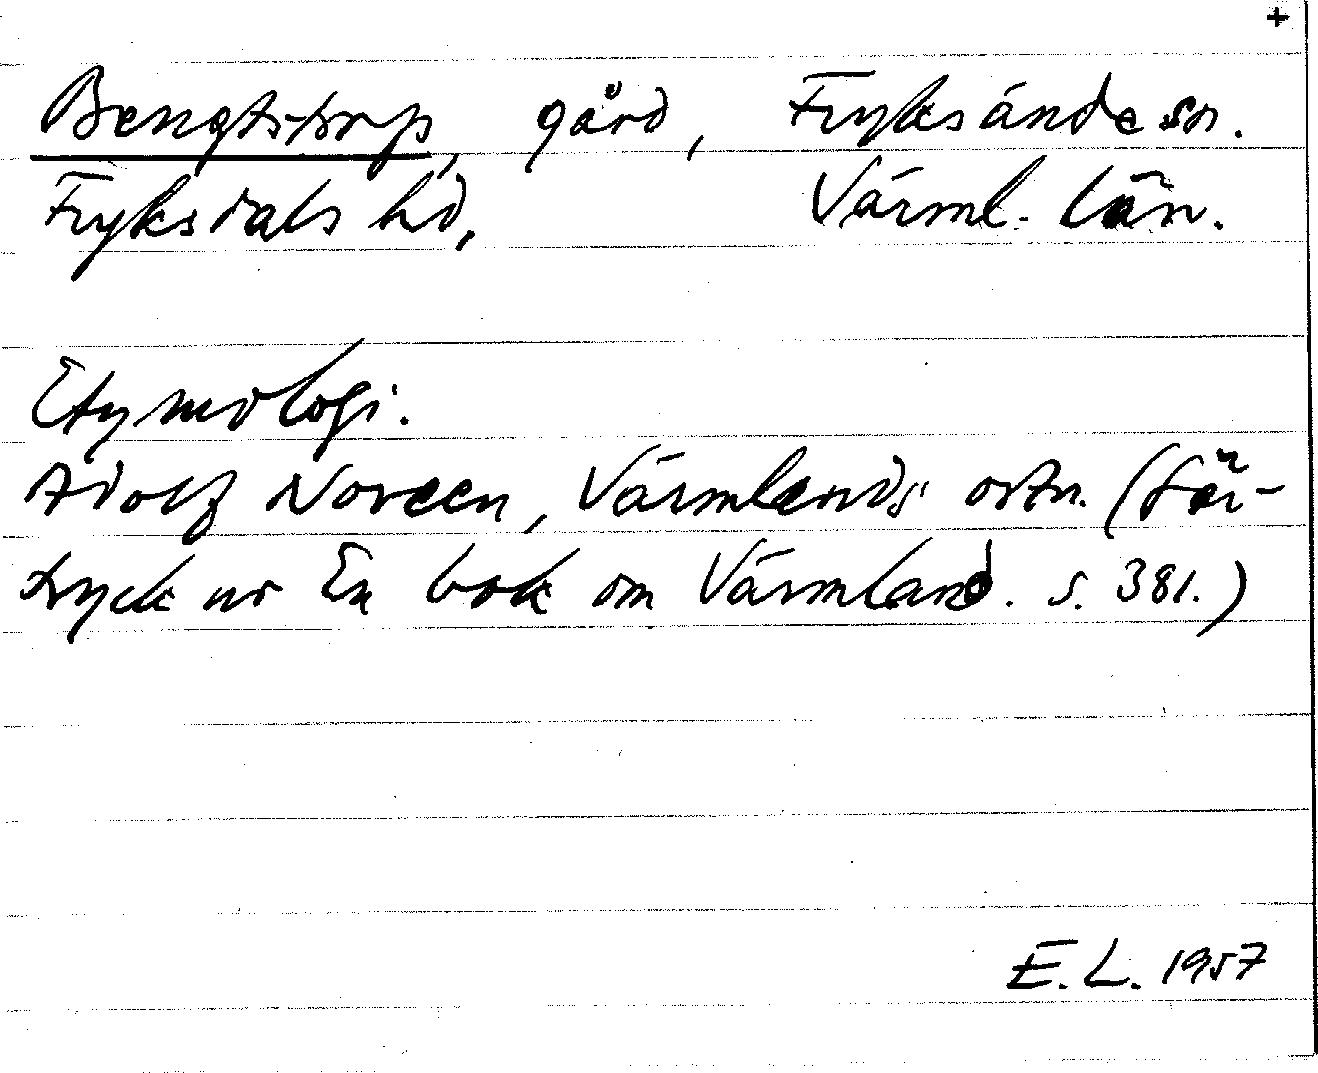 +
Bengtstorp, gård, Fryksände sn.
Fryksdals hd, Värml. län.
Etymologi.
Adolf Noreen, Värmlands ortn. (Sär-
tryck ur En bok om Värmland. s. 381.)
E. L. 1957